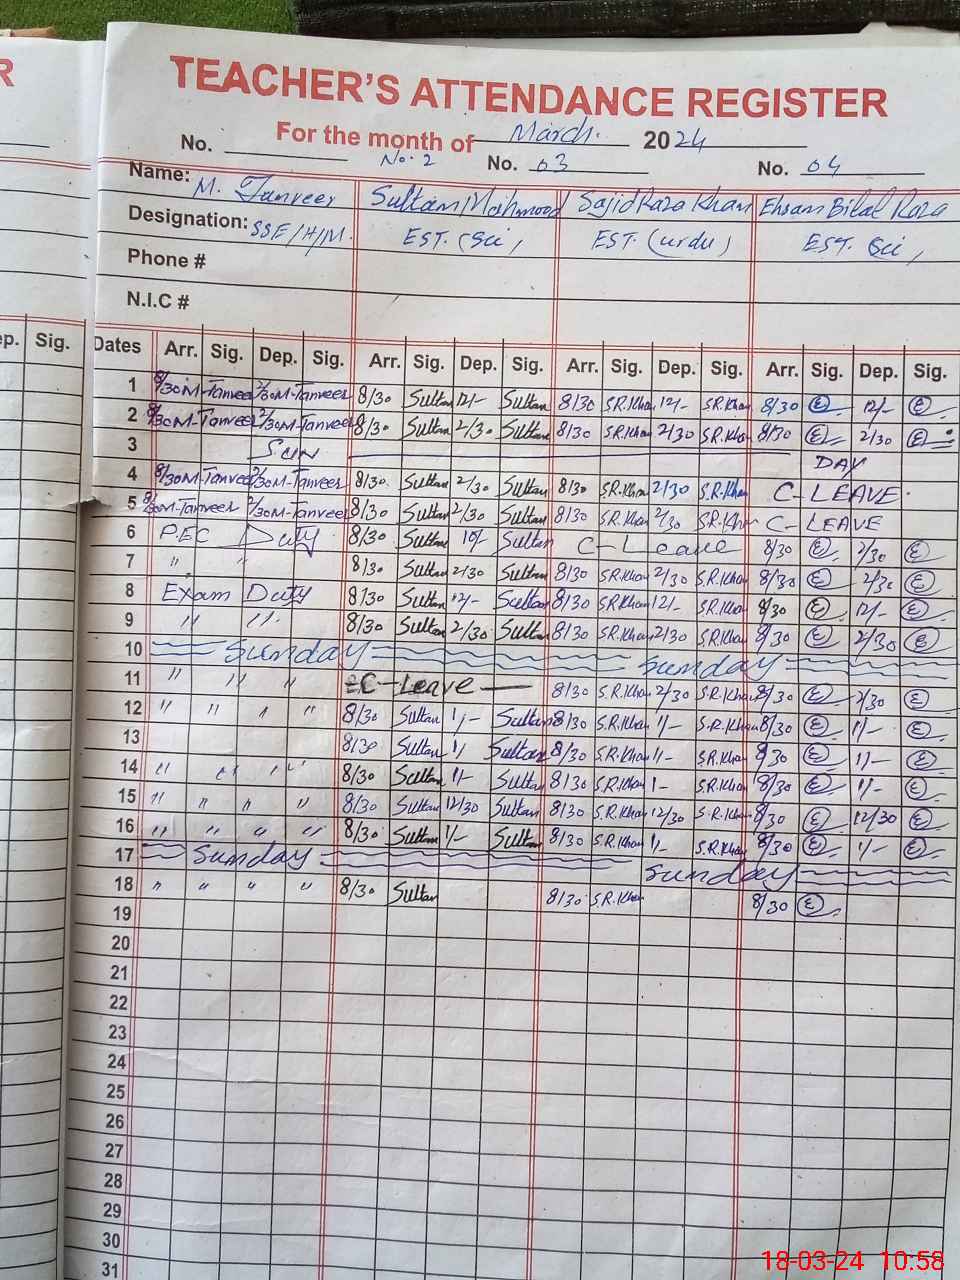 R
TEACHER'S ATTENDANCE REGISTER
For the month of March. 2024
No. No. 2 No. 03 No. 04
Name: M. Tanveer Sultan Mahmood Sajid Raza Khan Ehsan Bilal Raza
Designation: SSE/H/M. EST. (Sci, EST. (urdu) EST. Sci,
Phone #
N.I.C #
ep. Sig. Dates Arr. Sig. Dep. Sig. Arr. Sig. Dep. Sig. Arr. Sig. Dep. Sig. Arr. Sig. Dep. Sig.
1 8/30 M-Tanveer 2/30 M-Tanveer 8/30 Sultan 12/- Sultan 8/30 S.R.Khan 12/- S.R.Khan 8/30 12/-
2 8/30 M-Tanveer 2/30 M-Tanveer 8/30 Sultan 2/30 Sultan 8/30 S.R.Khan 2/30 S.R.Khan 8/30 2/30
3 Sun DAY
4 8/30 M-Tanveer 2/30 M-Tanveer 8/30 Sultan 2/30 Sultan 8/30 S.R.Khan 2/30 S.R.Khan C-LEAVE.
5 8/30 M-Tanveer 2/30 M-Tanveer 8/30 Sultan 2/30 Sultan 8/30 S.R.Khan 2/30 S.R.Khan C-LEAVE
6 PEC Duty 8/30 Sultan 10/- Sultan C-Leave 8/30 2/30
7 " " 8/30 Sultan 2/30 Sultan 8/30 S.R.Khan 2/30 S.R.Khan 8/30 2/30
8 Exam Duty 8/30 Sultan 12/- Sultan 8/30 S.R.Khan 12/- S.R.Khan 8/30 12/-
9 " " 8/30 Sultan 2/30 Sultan 8/30 S.R.Khan 2/30 S.R.Khan 8/30 2/30
10 Sunday Sunday
11 " " " C-Leave 8/30 S.R.Khan 2/30 S.R.Khan 8/30 2/30
12 " " " " 8/30 Sultan 1/- Sultan 8/30 S.R.Khan 1/- S.R.Khan 8/30 1/-
13 8/30 Sultan 1/ Sultan 8/30 S.R.Khan 1/- S.R.Khan 8/30 1/-
14 " " " " 8/30 Sultan 1/- Sultan 8/30 S.R.Khan 1- S.R.Khan 8/30 1/-
15 " " " " 8/30 Sultan 12/30 Sultan 8/30 S.R.Khan 12/30 S.R.Khan 8/30 12/30
16 " " " " 8/30 Sultan 1/- Sultan 8/30 S.R.Khan 1/- S.R.Khan 8/30 1/-
17 Sunday Sunday
18 " " " " 8/30 Sultan 8/30 S.R.Khan 8/30
19
20
21
22
23
24
25
26
27
28
29
30
31
18-03-24 10:58